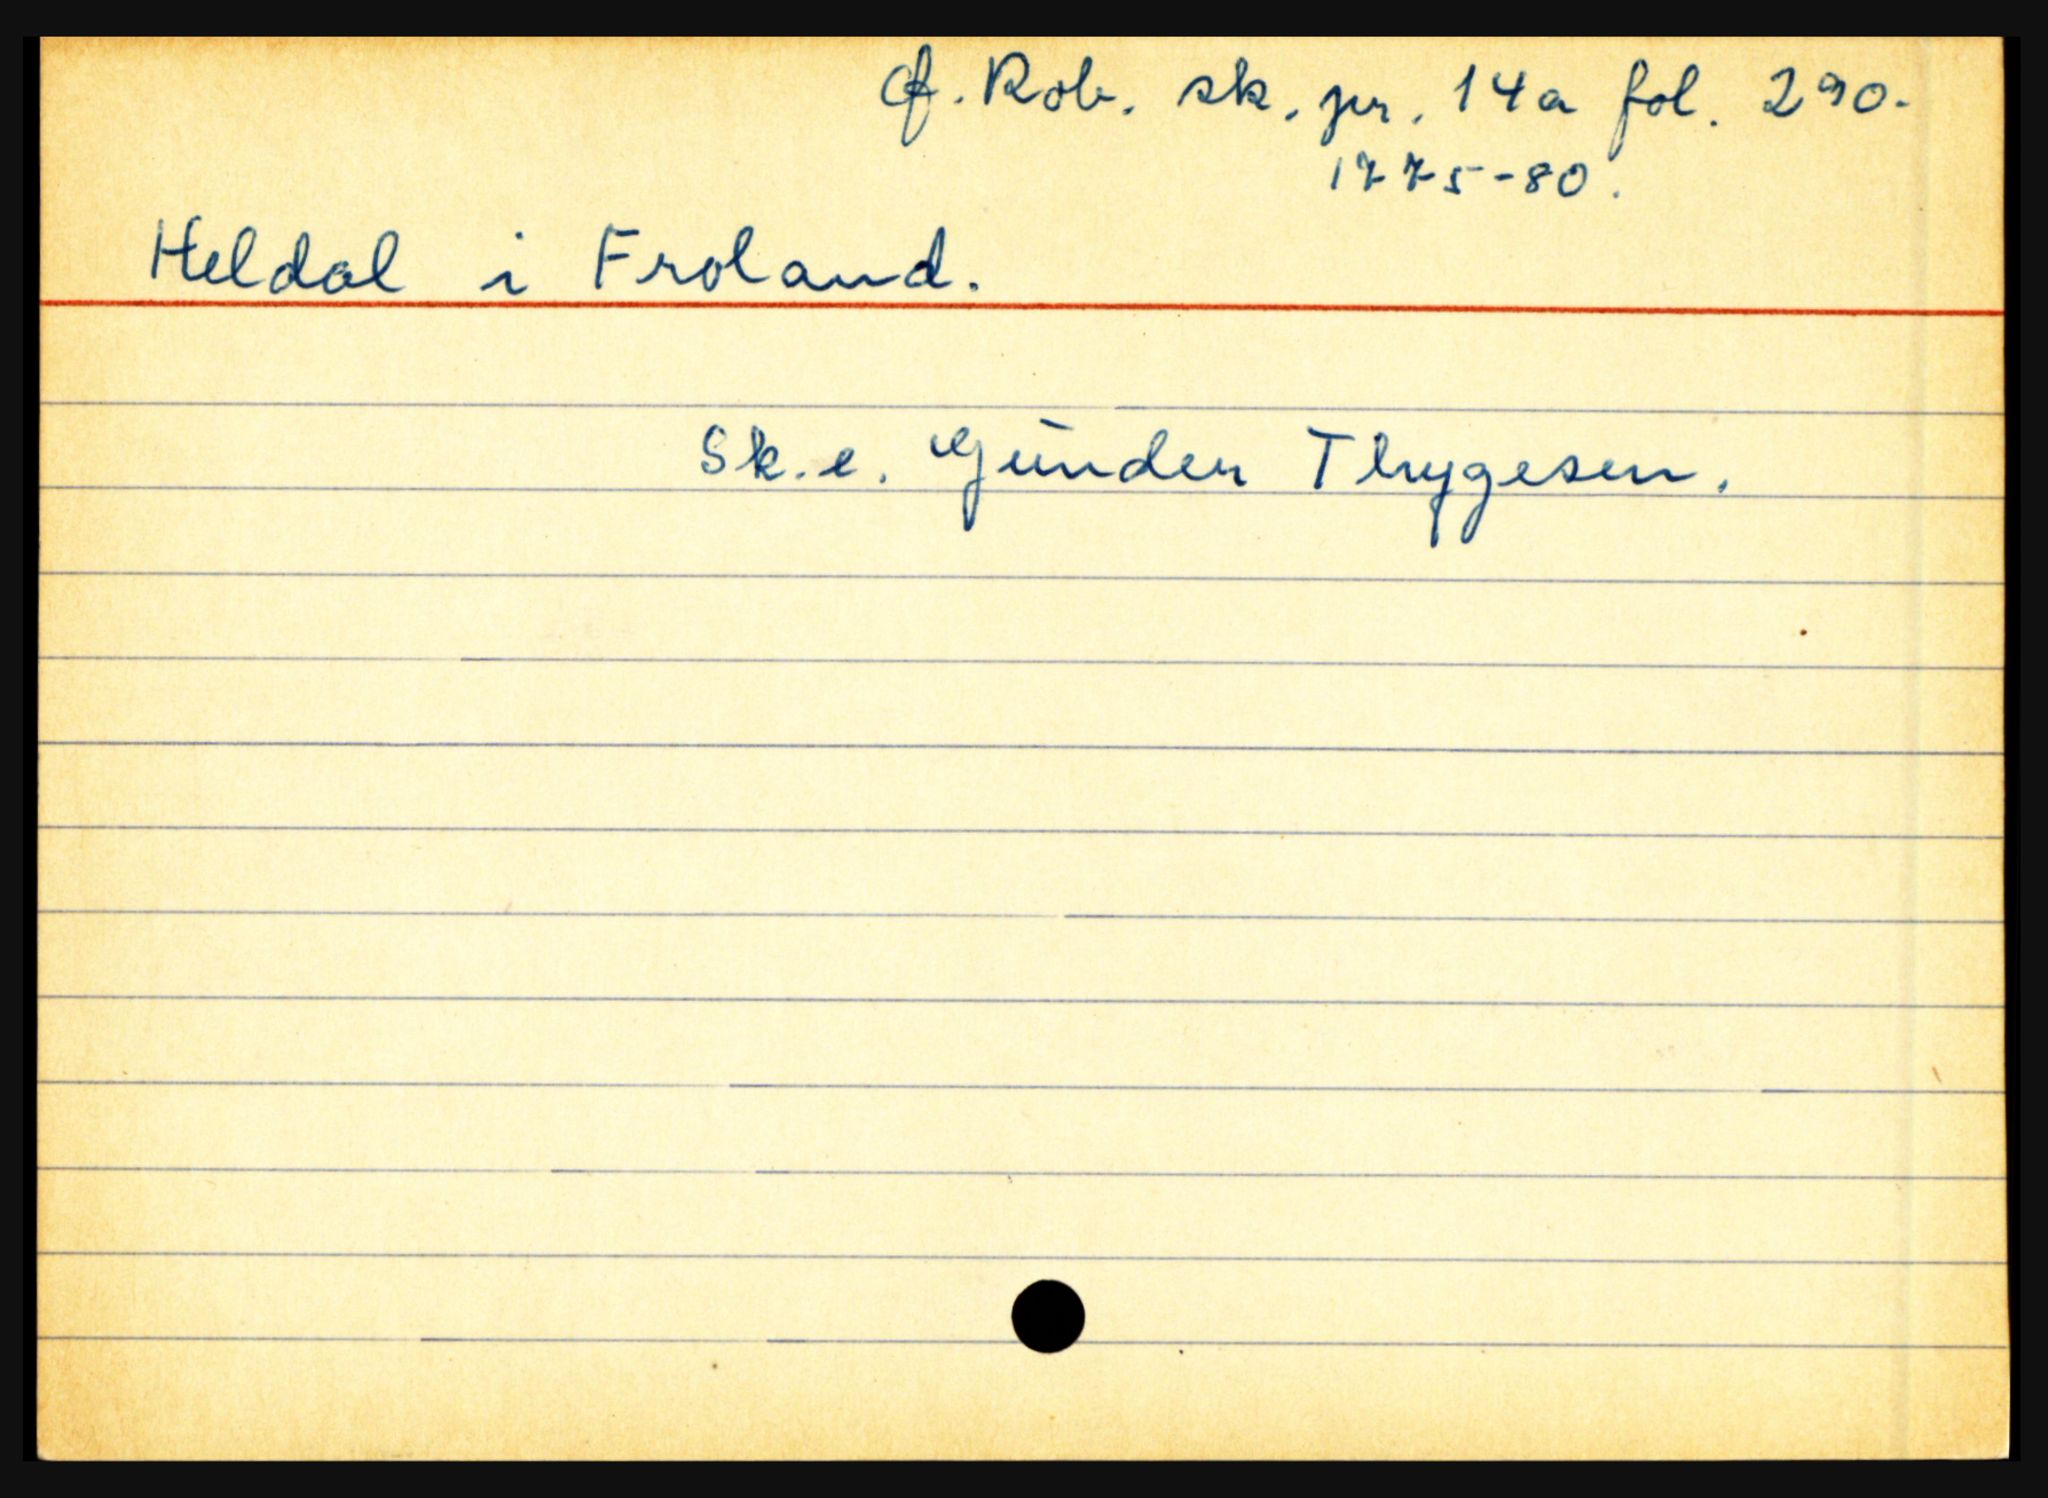 Cf. Rob. sk. pr. 14a fol. 290.
1775-80.
Heldal i Froland.
Sk. e. Gunder Thygesen.